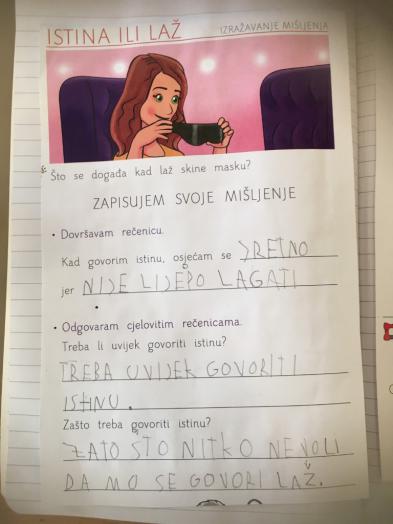 ISTINA ILI LAŽ
IZRAŽAVANJE MIŠLJENJA
Što se događa kad laž skine masku?
ZAPISUJEM SVOJE MIŠLJENJE
• Dovršavam rečenicu.
Kad govorim istinu, osjećam se SRETNO
jer NIJE LIJEPO LAGATI
• Odgovaram cjelovitim rečenicama.
Treba li uvijek govoriti istinu?
TREBA UVIJEK GOVORITI
ISTINU.
Zašto treba govoriti istinu?
ZATO ŠTO NITKO NEVOLI
DA MO SE GOVORI LAŽ.